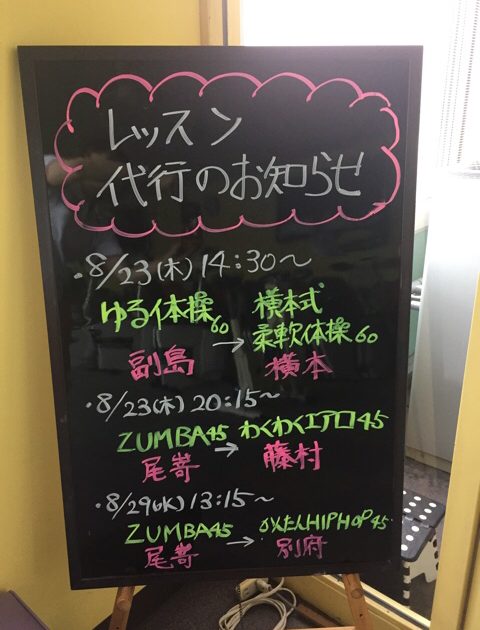 レッスン
代行のお知らせ
・8/23(木) 14:30〜
ゆる体操60 → 横本式柔軟体操60
副島 横本
・8/23(木) 20:15〜
ZUMBA45 → わくわくエアロ45
尾嵜 藤村
・8/29(水) 13:15〜
ZUMBA45 → かんたんHIPHOP45
尾嵜 別府